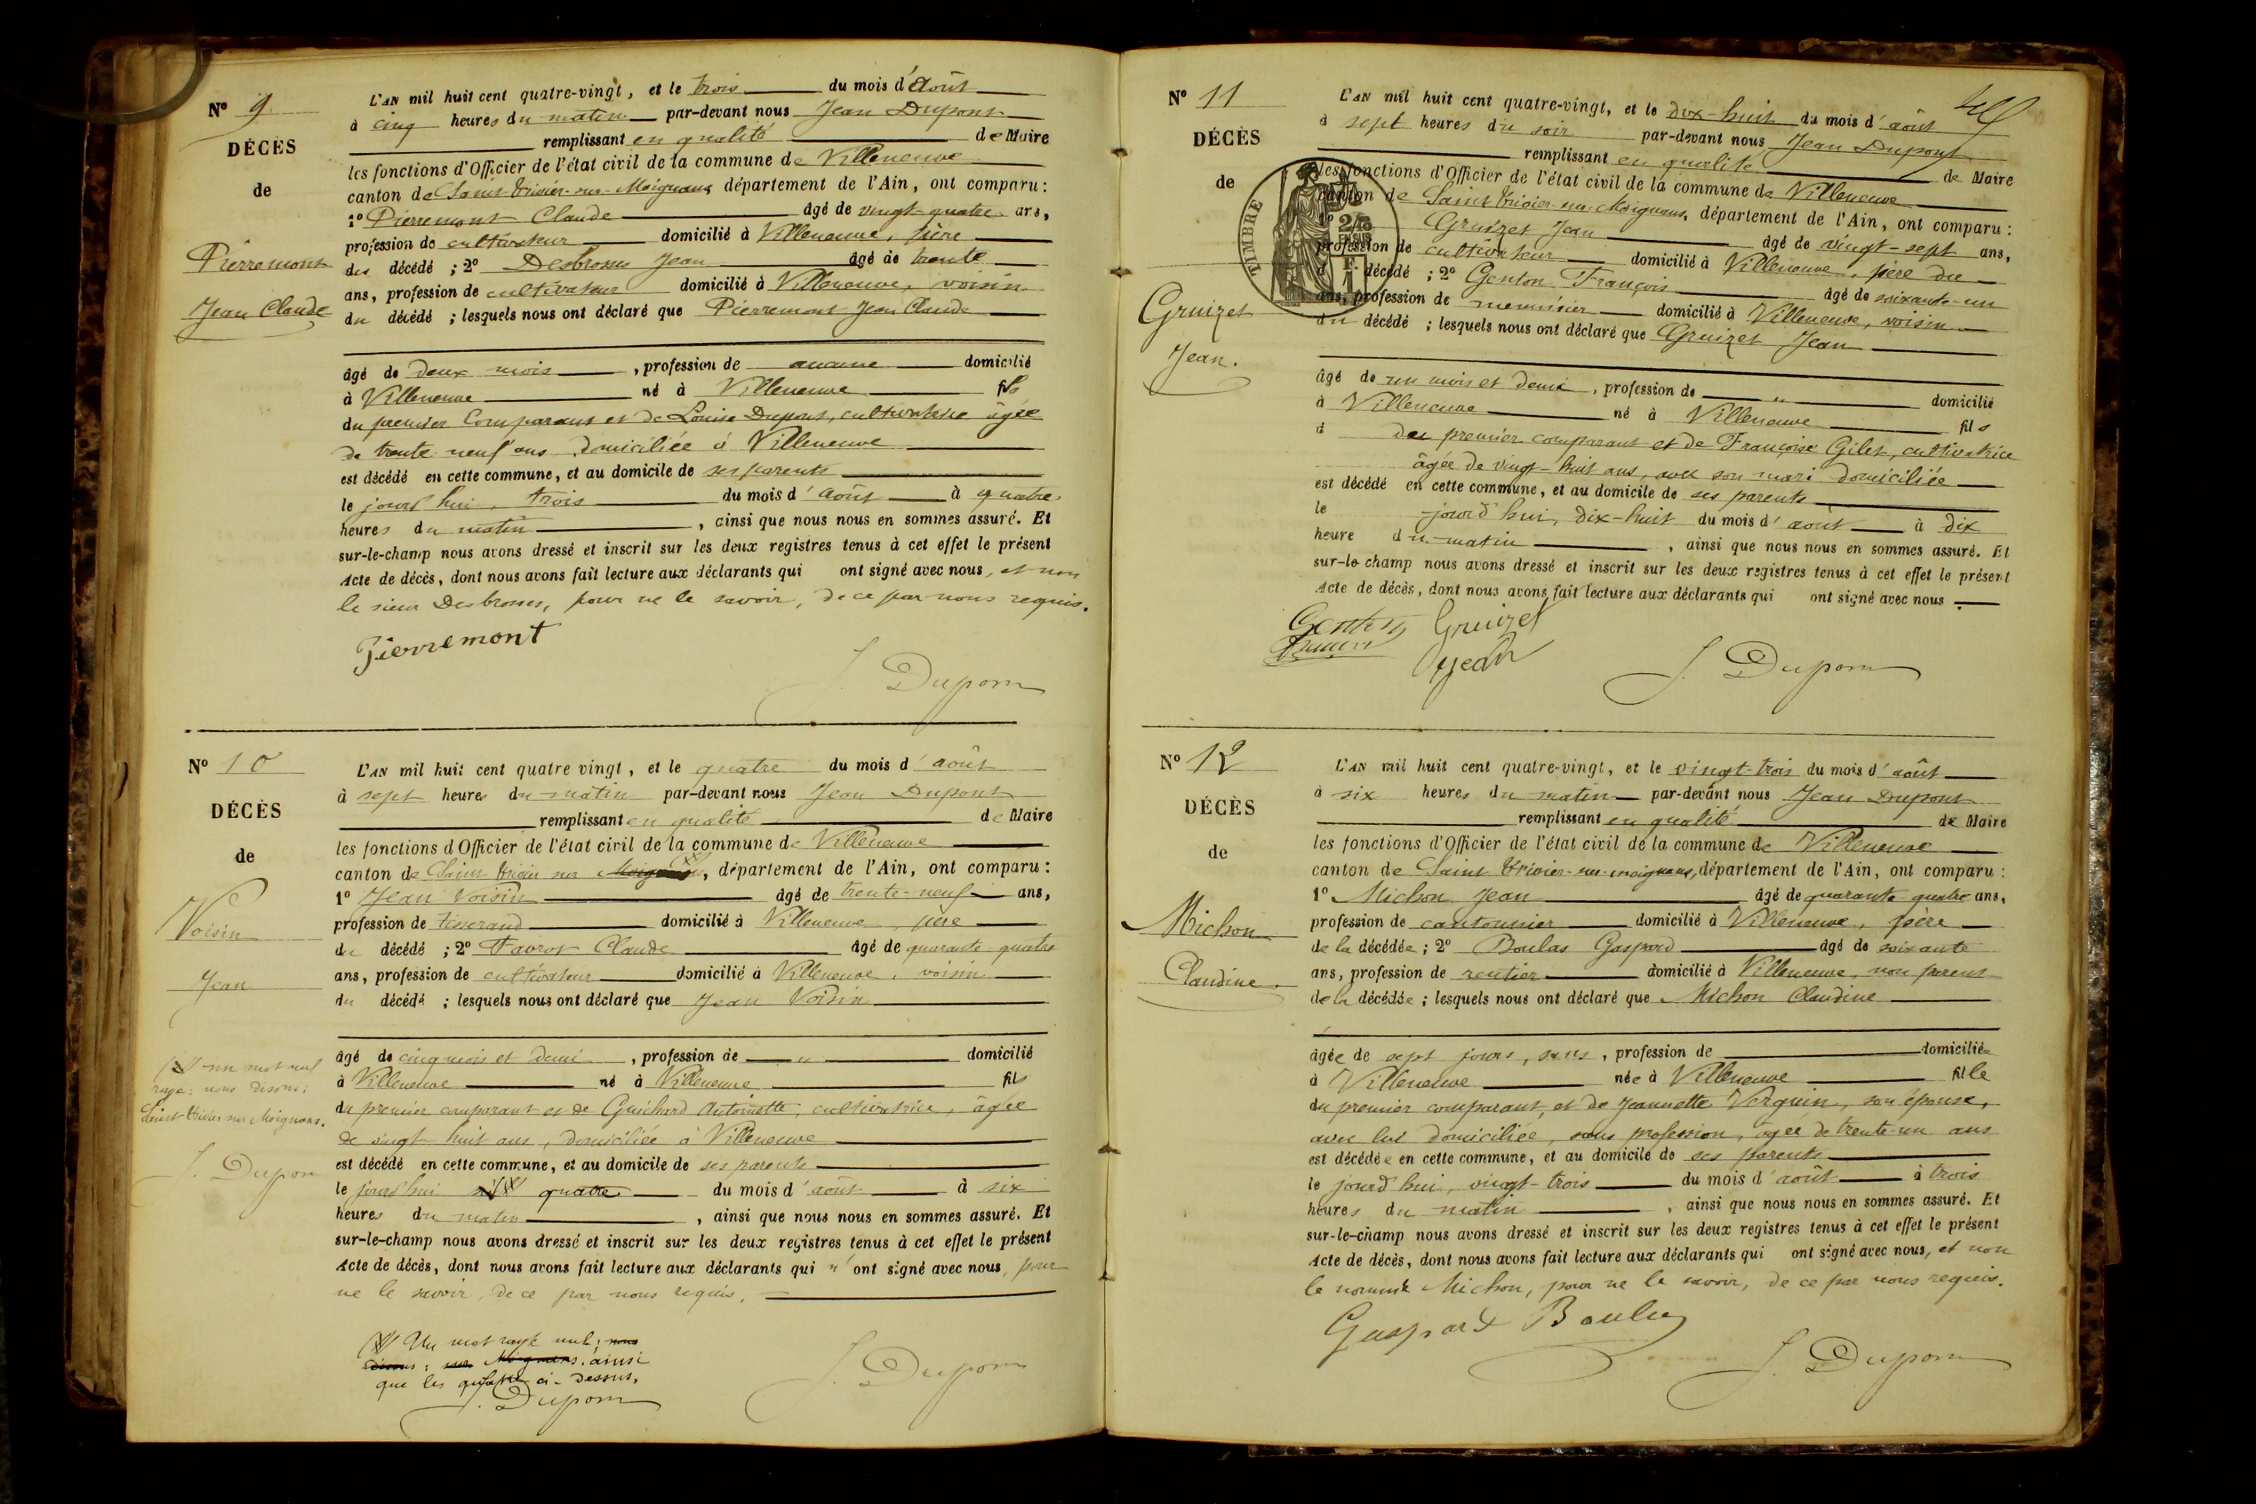 N° 9
DÉCÈS
de
Pierremont
Jean Claude
L'AN mil huit cent quatre-vingt, et le trois du mois d'août
à cinq heures du matin par-devant nous Jean Dupont
remplissant en qualité de Maire
les fonctions d'Officier de l'état civil de la commune de Villeneuve
canton de Saint Trivier-sur-Moignans département de l'Ain, ont comparu :
1° Pierremont Claude âgé de vingt-quatre ans,
profession de cultivateur domicilié à Villeneuve, père
du décédé ; 2° Desbrosses Jean âgé de trente
ans, profession de cultivateur domicilié à Villeneuve, voisin
du décédé ; lesquels nous ont déclaré que Pierremont Jean Claude
âgé de deux mois, profession de aucune domicilié
à Villeneuve né à Villeneuve fils
du premier Comparant et de Louise Dupont, cultivatrice âgée
de trente neuf ans domiciliée à Villeneuve
est décédé en cette commune, et au domicile de ses parents
le jourd'hui, trois du mois d'août à quatre
heures du matin, ainsi que nous nous en sommes assuré. Et
sur-le-champ nous avons dressé et inscrit sur les deux registres tenus à cet effet le présent
Acte de décès, dont nous avons fait lecture aux déclarants qui ont signé avec nous, et non
le sieur Desbrosses, pour ne le savoir, de ce par nous requis.
Pierremont
J. Dupont
N° 10
DÉCÈS
de
Voisin
Jean
(X) un mot nul
rayé : nous disons :
Saint Trivier sur Moignans.
J. Dupont
L'AN mil huit cent quatre vingt, et le quatre du mois d'août
à sept heures du matin par-devant nous Jean Dupont
remplissant en qualité de Maire
les fonctions d'Officier de l'état civil de la commune de Villeneuve
canton de Saint Trivier sur Moignans (X), département de l'Ain, ont comparu :
1° Jean Voisin âgé de trente-neuf ans,
profession de tisserand domicilié à Villeneuve, père
du décédé ; 2° Favrot Claude âgé de quarante quatre
ans, profession de cultivateur domicilié à Villeneuve, voisin
du décédé ; lesquels nous ont déclaré que Jean Voisin
âgé de cinq mois et demi, profession de " domicilié
à Villeneuve né à Villeneuve fils
du premier comparant et de Guichard Antoinette, cultivatrice, âgée
de vingt huit ans, domiciliée à Villeneuve
est décédé en cette commune, et au domicile de ses parents
le jourd'hui quatre du mois d'août à six
heures du matin, ainsi que nous nous en sommes assuré. Et
sur-le-champ nous avons dressé et inscrit sur les deux registres tenus à cet effet le présent
Acte de décès, dont nous avons fait lecture aux déclarants qui n'ont signé avec nous, pour
ne le savoir, de ce par nous requis.
(X) Un mot rayé nul ; nous
disons : sur Moignans. ainsi
que les ci-dessus.
J. Dupont
J. Dupont
N° 11
DÉCÈS
de
Gruizet
Jean.
TIMBRE
L'AN mil huit cent quatre-vingt, et le dix-huit du mois d'août
à sept heures du soir par-devant nous Jean Dupont
remplissant en qualité de Maire
les fonctions d'Officier de l'état civil de la commune de Villeneuve
canton de Saint Trivier-sur-Moignans, département de l'Ain, ont comparu :
1° Gruizet Jean âgé de vingt-sept ans,
profession de cultivateur domicilié à Villeneuve, père du
décédé ; 2° Genton François âgé de soixante-un
ans, profession de menuisier domicilié à Villeneuve, voisin
du décédé ; lesquels nous ont déclaré que Gruizet Jean
âgé de un mois et demi, profession de " domicilié
à Villeneuve né à Villeneuve fils
d du premier comparant et de Françoise Gilet, cultivatrice
âgée de vingt-huit ans, avec son mari domiciliée
est décédé en cette commune, et au domicile de ses parents
le jourd'hui, dix-huit du mois d'août à dix
heure du matin, ainsi que nous nous en sommes assuré. Et
sur-le champ nous avons dressé et inscrit sur les deux registres tenus à cet effet le présent
Acte de décès, dont nous avons fait lecture aux déclarants qui ont signé avec nous.
Genton Gruizet
Jean
J. Dupont
N° 12
DÉCÈS
de
Michon
Claudine.
L'AN mil huit cent quatre-vingt, et le vingt-trois du mois d'août
à six heures du matin par-devant nous Jean Dupont
remplissant en qualité de Maire
les fonctions d'Officier de l'état civil de la commune de Villeneuve
canton de Saint Trivier-sur-moignans, département de l'Ain, ont comparu :
1° Michon Jean âgé de quarante quatre ans,
profession de cantonnier domicilié à Villeneuve, père
de la décédée ; 2° Boulas Gaspard âgé de soixante
ans, profession de rentier domicilié à Villeneuve, non parent
de la décédée ; lesquels nous ont déclaré que Michon Claudine
âgée de sept jours, sans, profession de domiciliée
à Villeneuve née à Villeneuve fille
du premier comparant, et de Jeannette Verguin, son épouse,
avec lui domiciliée, sans profession, âgée de trente-un ans
est décédée en cette commune, et au domicile de ses parents
le jourd'hui, vingt-trois du mois d'août à trois
heures du matin, ainsi que nous nous en sommes assuré. Et
sur-le-champ nous avons dressé et inscrit sur les deux registres tenus à cet effet le présent
Acte de décès, dont nous avons fait lecture aux déclarants qui ont signé avec nous, et non
le nommé Michon, pour ne le savoir, de ce par nous requis.
Gaspard Boulas
J. Dupont